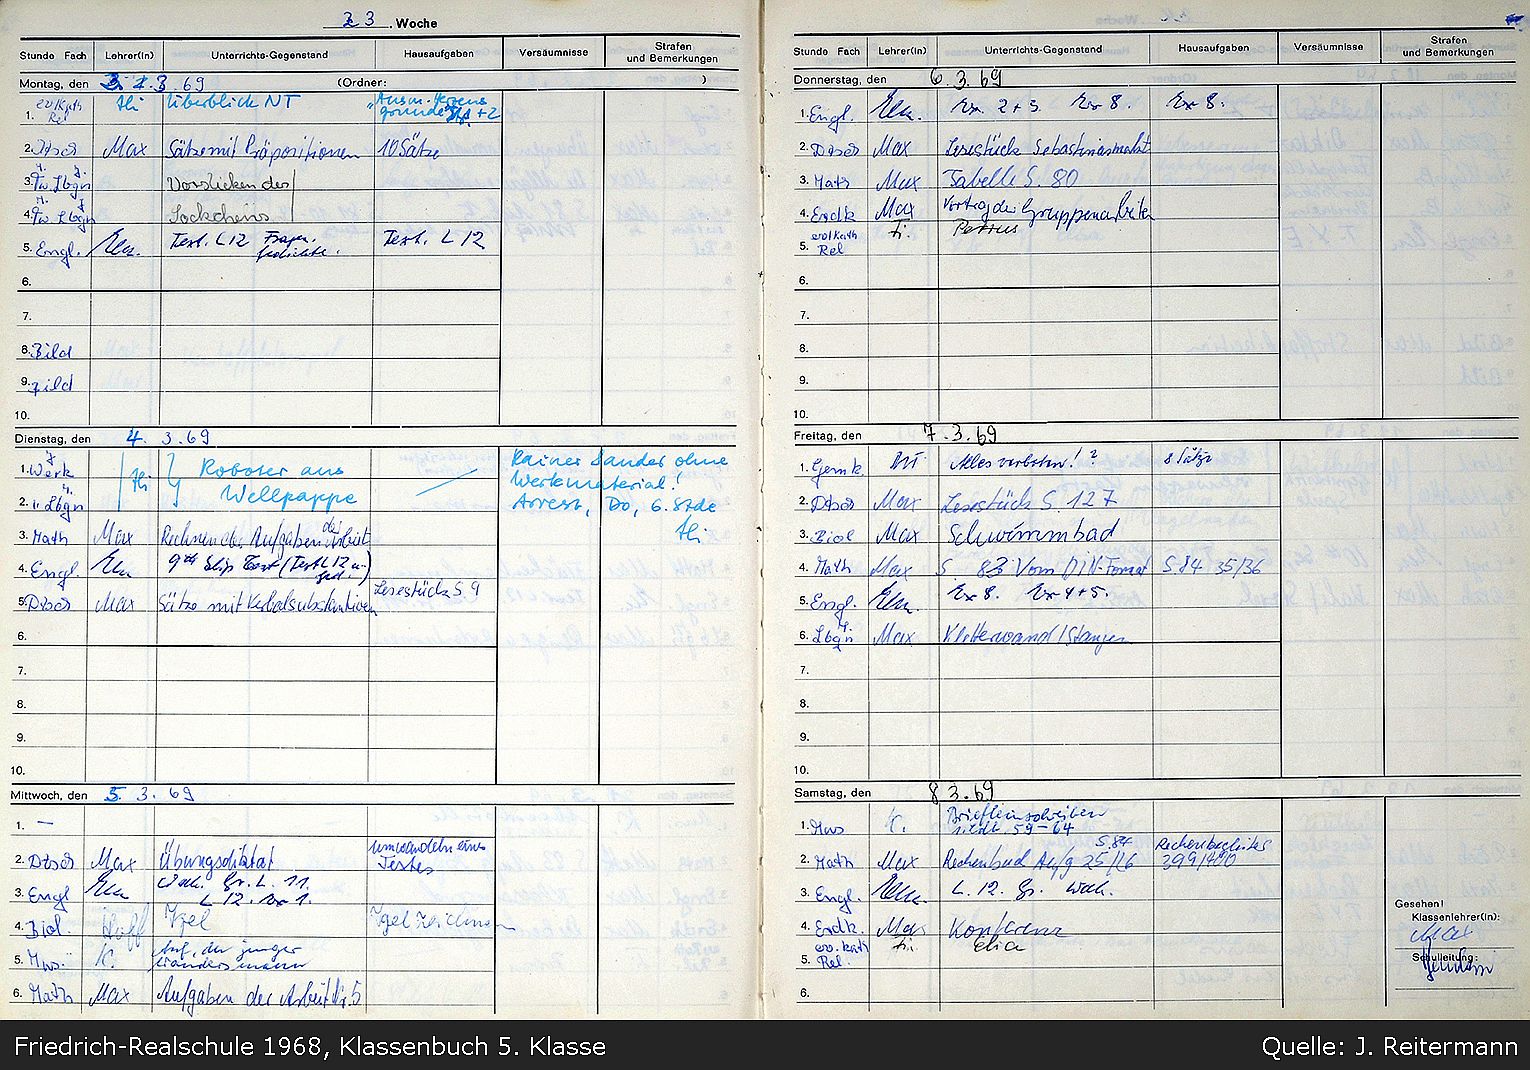 23. Woche
Stunde Fach Lehrer(in) Unterrichts-Gegenstand Hausaufgaben Versäumnisse Strafen und Bemerkungen
Montag, den 3.3.69 (Ordner: )
1. ev/Kath Rel Hi Überblick NT
2. Dtsch Max Sätze mit Präpositionen 10 Sätze
3. Tw. Lbgn Vorstricken des
4. Tw. Lbgn Söckchens
5. Engl. Text. L 12 Fragen. Text. L 12
6.
7.
8. Bild
9. Bild
10.
Dienstag, den 4. 3. 69
1. Werk Hi Roboter aus Rainer Sander ohne
2. " Lbgn Wellpappe Werkmaterial!
Arrest, Do, 6. Stde
Hi
3. Math Max Rechnen der Aufgaben der Arbeit
4. Engl. 9th Slip Test (Text L 12 u.
5. Dtsch Max Sätze mit Verbalsubstantiven Lesestück S. 9
6.
7.
8.
9.
10.
Mittwoch, den 5. 3. 69
1. —
2. Dtsch Max Übungsdiktat Umwandeln eines Textes
3. Engl Gr. L. 11.
L 12.
4. Biol. Hoff Igel Igel zeichnen
5. Mus. K. Auf, du junger Wandersmann
6. Math Max Aufgaben der Arbeit Nr. 5
Stunde Fach Lehrer(in) Unterrichts-Gegenstand Hausaufgaben Versäumnisse Strafen und Bemerkungen
Donnerstag, den 6.3.69
1. Engl. Ex. 2+3. Ex 8. Ex 8.
2. Dtsch Max Lesestück Sebastiansmarkt
3. Math Max Tabelle S. 80
4. Erdk Max Vortrag der Gruppenarbeiten
5. ev/Kath Rel Fi. Petrus
6.
7.
8.
9.
10.
Freitag, den 7.3.69
1. Gemk. Alles verboten!? 8 Sätze
2. Dtsch Max Lesestück S. 127
3. Biol Max Schwimmbad
4. Math Max S 83 Vom DIN-Format S. 84 35/36
5. Engl. Ex 8. Ex 4+5.
6. Lbgn Max Kletterwand/Stangen
7.
8.
9.
10.
Samstag, den 8.3.69
1. Mus K. 59-64
2. Math Max Rechenbuch Aufg 25/26 S. 84 Rechenbegleiter 399/400
3. Engl. L. 12. Gr. Wdh.
4. Erdk. Max Konferenz
5. ev. Kath Rel. Fi. Elia
6.
Gesehen!
Klassenlehrer(in):
Max
Schulleitung:
Friedrich-Realschule 1968, Klassenbuch 5. Klasse
Quelle: J. Reitermann